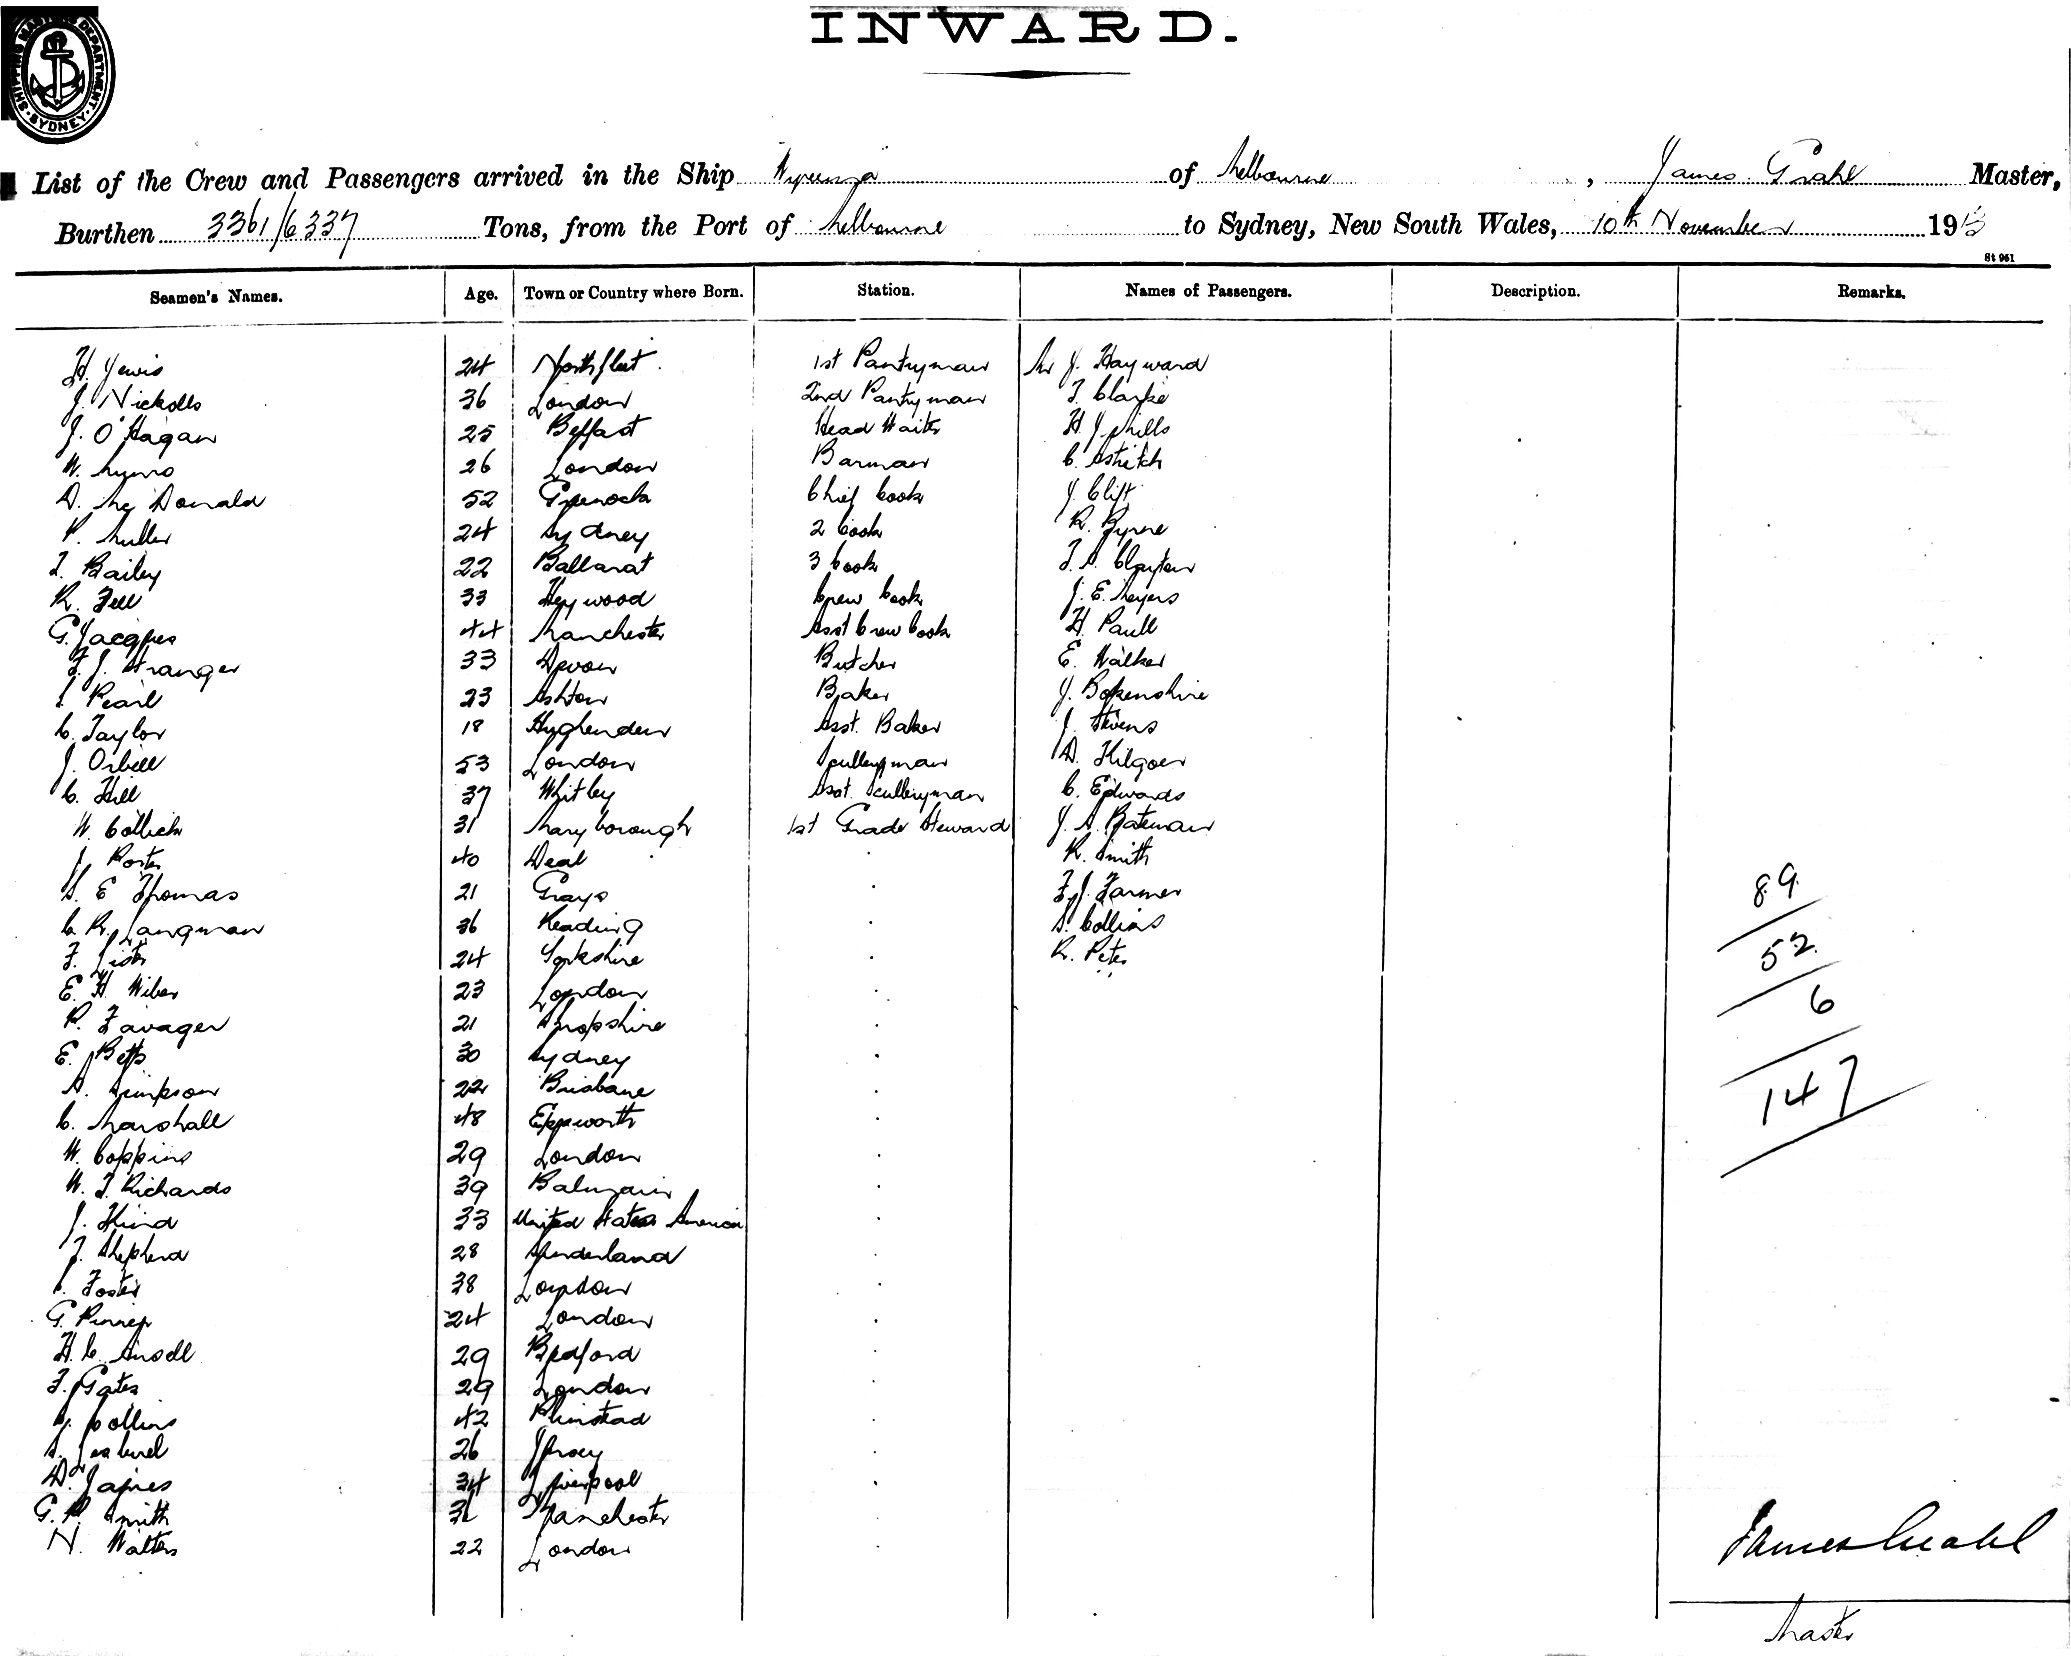 INWARD.
SHIPPING MASTERS DEPARTMENT. SYDNEY.
List of the Crew and Passengers arrived in the Ship Wyreema of Melbourne, James Grahl Master,
Burthen 3361/6337 Tons, from the Port of Melbourne to Sydney, New South Wales, 10th November 1913
St 961
Seamen's Names. Age. Town or Country where Born. Station. Names of Passengers. Description. Remarks.
H. Lewis 24 Northfleet 1st Pantryman Mr J. Hayward
J. Nickolls 36 London 2nd Pantryman T. Clarke
J. O'Hagan 25 Belfast Head Waiter H. J. Mills
W. Munro 26 London Barman C. Stritch
D. Mc Donald 52 Greenock Chief Cook J. Clift
P. Muller 24 Sydney 2 Cook R. Byrne
T. Bailey 22 Ballarat 3 Cook T. A. Clayton
R. Fell 33 Heywood Crew Cook J. E. Meyers
G. Jacques 44 Manchester Asst Crew Cook H. Paull
F. J. Stranger 33 Devon Butcher E. Walker
Pearl 23 Ashton Baker J. Bokenshire
C. Taylor 18 Hughenden Asst. Baker J. Stevens
J. Orbell 53 London Sculleryman D. Kilgour
C. Hill 37 Whitby Asst. Sculleryman C. Edwards
W. Collick 31 Maryborough 1st Grade Steward J. A. Bateman
J. Porter 40 Deal R. Smith
S. E Thomas 21 Grays F. J. Farmer
C. R. Langman 36 Reading S. Collins
F. Lister 24 Yorkshire R. Peter
E. H. Wiber 23 London
P. Favager 21 Shropshire
E. Betts 30 Sydney
A. Simpson 22 Brisbane
C. Marshall 48 Eppworth
W. Coppins 29 London
W. T. Richards 39 Balmain
J. Hind 33 United States America
J. Shepherd 28 Sunderland
Foster 38 London
G. 24 London
H. C. Ansell 29 Bedford
F. Gates 29 London
J. Collins 42 Plumstead
S. 26 Jersey
D. James 34 Liverpool
G. P. Smith Manchester
N. Walters 22 London
89
52
6
147
James Grahl
Master